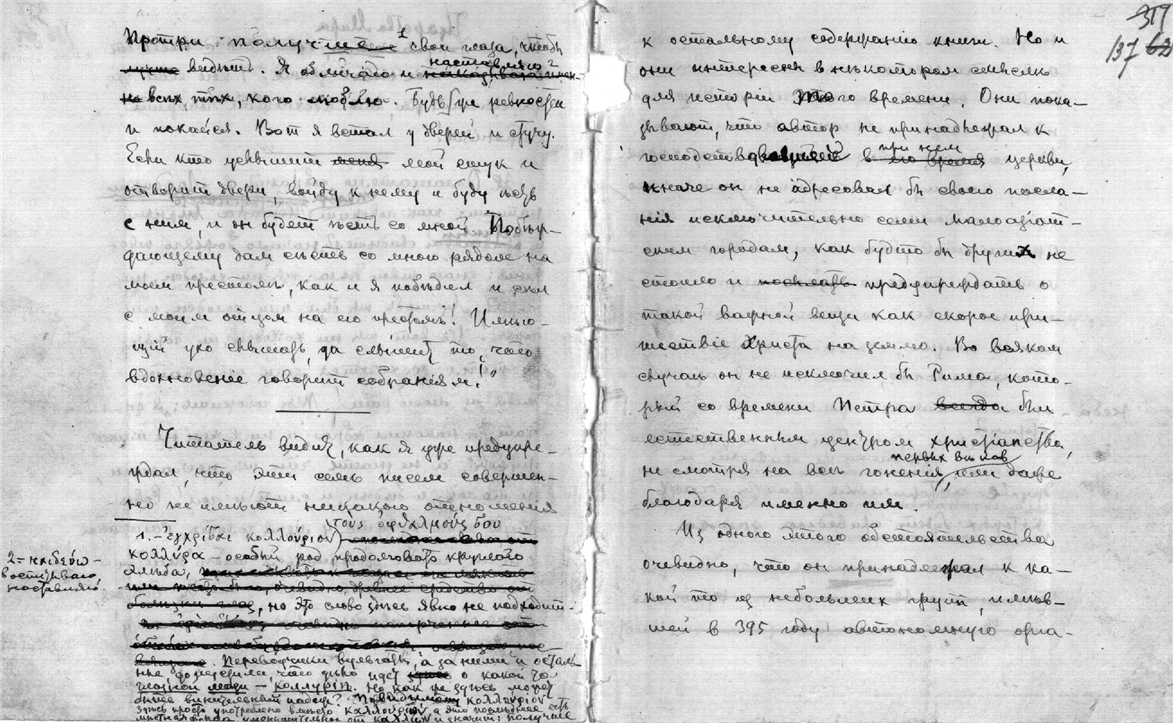 Протри получше ¹ свои глаза, чтобъ
видѣть. Я обличаю и наставляю ²
всѣхъ тѣхъ, кого люблю. Будь же ревностенъ
и покайся. Вот я всталъ у дверей и стучу.
Если кто услышитъ мой стукъ и
отворитъ двери, войду къ нему и буду ѣсть
с ним и он будетъ ѣсть со мной. Побѣж-
дающему дам сѣсть со мною рядом на
моем престолѣ, как и я побѣдил и сѣл
с моим отцом на его престолѣ! Имѣю-
щій ухо слышать, да слышит то, что
вдохновеніе говорит собраніям!"
Читатель видит, как я уже предупре-
ждал, что эти семь писем совершен-
но не имѣют никакого отношения
1. – ἐγχρῖσαι κολλούριον τοὺς ὀφθαλμούς σου
κολλύρα – особый род продолговато круглого
хлѣба, но это слово здѣсь явно не подходит.
Переводчики вульгаты, а за ними и осталь-
ные
глазной мази – коллурій. Но как же здѣсь может
быть винительный падеж? κολλούριον
здѣсь просто употреблено вмѣсто
и значит: получше
2 = παιδεύω –
воспитываю
наставляю.
317
137 62
к остальному содержанію книги. Но и
они интересны в нѣкотором смыслѣ
для исторіи того времени. Они пока-
зывают, что автор не принадлежал к
господствовавшей в при нем церкви,
иначе он не адресовал бы своего посла-
нія исключительно семи малоазіат-
ским городам, как будто бы других не
стоило и предупреждать о
такой важной вещи как скорое при-
шествіе Христа на землю. Во всяком
случаѣ он не исключил бы Рима, кото-
рый со времени Петра был
естественным центром христіанства,
не смотря на всѣ гоненія первых вѣков, или даже
благодаря именно им.
Из одного этого обстоятельства
очевидно, что он принадлежал к ка-
кой то из небольших групп, имѣв-
шей в 395 году автономную орга-